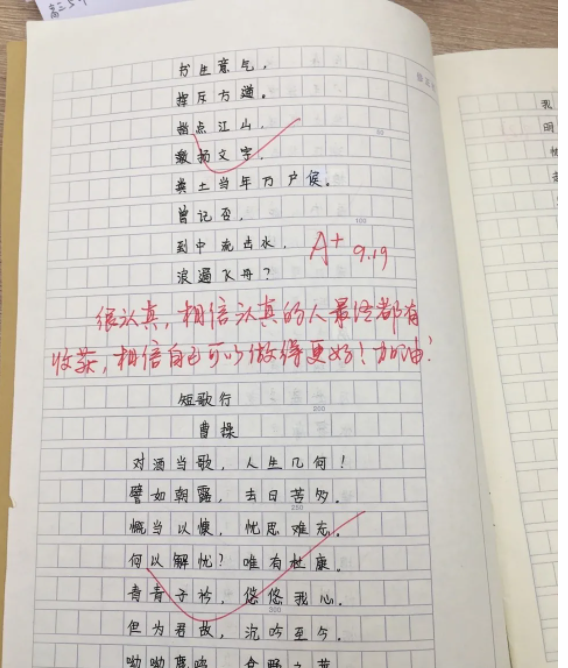 书生意气，
挥斥方遒。
指点江山，
激扬文字，
粪土当年万户侯。
曾记否，
到中流击水，
浪遏飞舟？
A+ 9.19
很认真，相信认真的人最终都有
收获，相信自己可以做得更好！加油！
短歌行
200
曹操
对酒当歌，人生几何！
譬如朝露，去日苦多。
250
慨当以慷，忧思难忘。
何以解忧？唯有杜康。
青青子衿，悠悠我心。
300
但为君故，沉吟至今。
呦呦鹿鸣，食野之苹
我
明